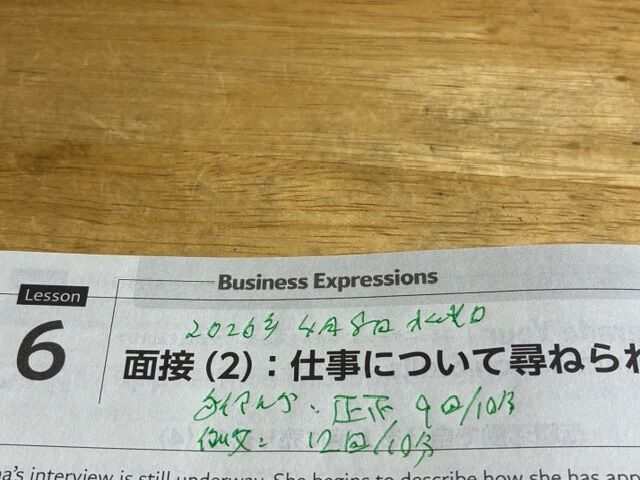 Business Expressions
Lesson
6
2026年 4月8日 水曜日
面接 (2)：仕事について尋ねられ
ダイアログ: 正正 9回/10分
例文: 12回/10分
na's interview is still underway. She begins to describe how she has app